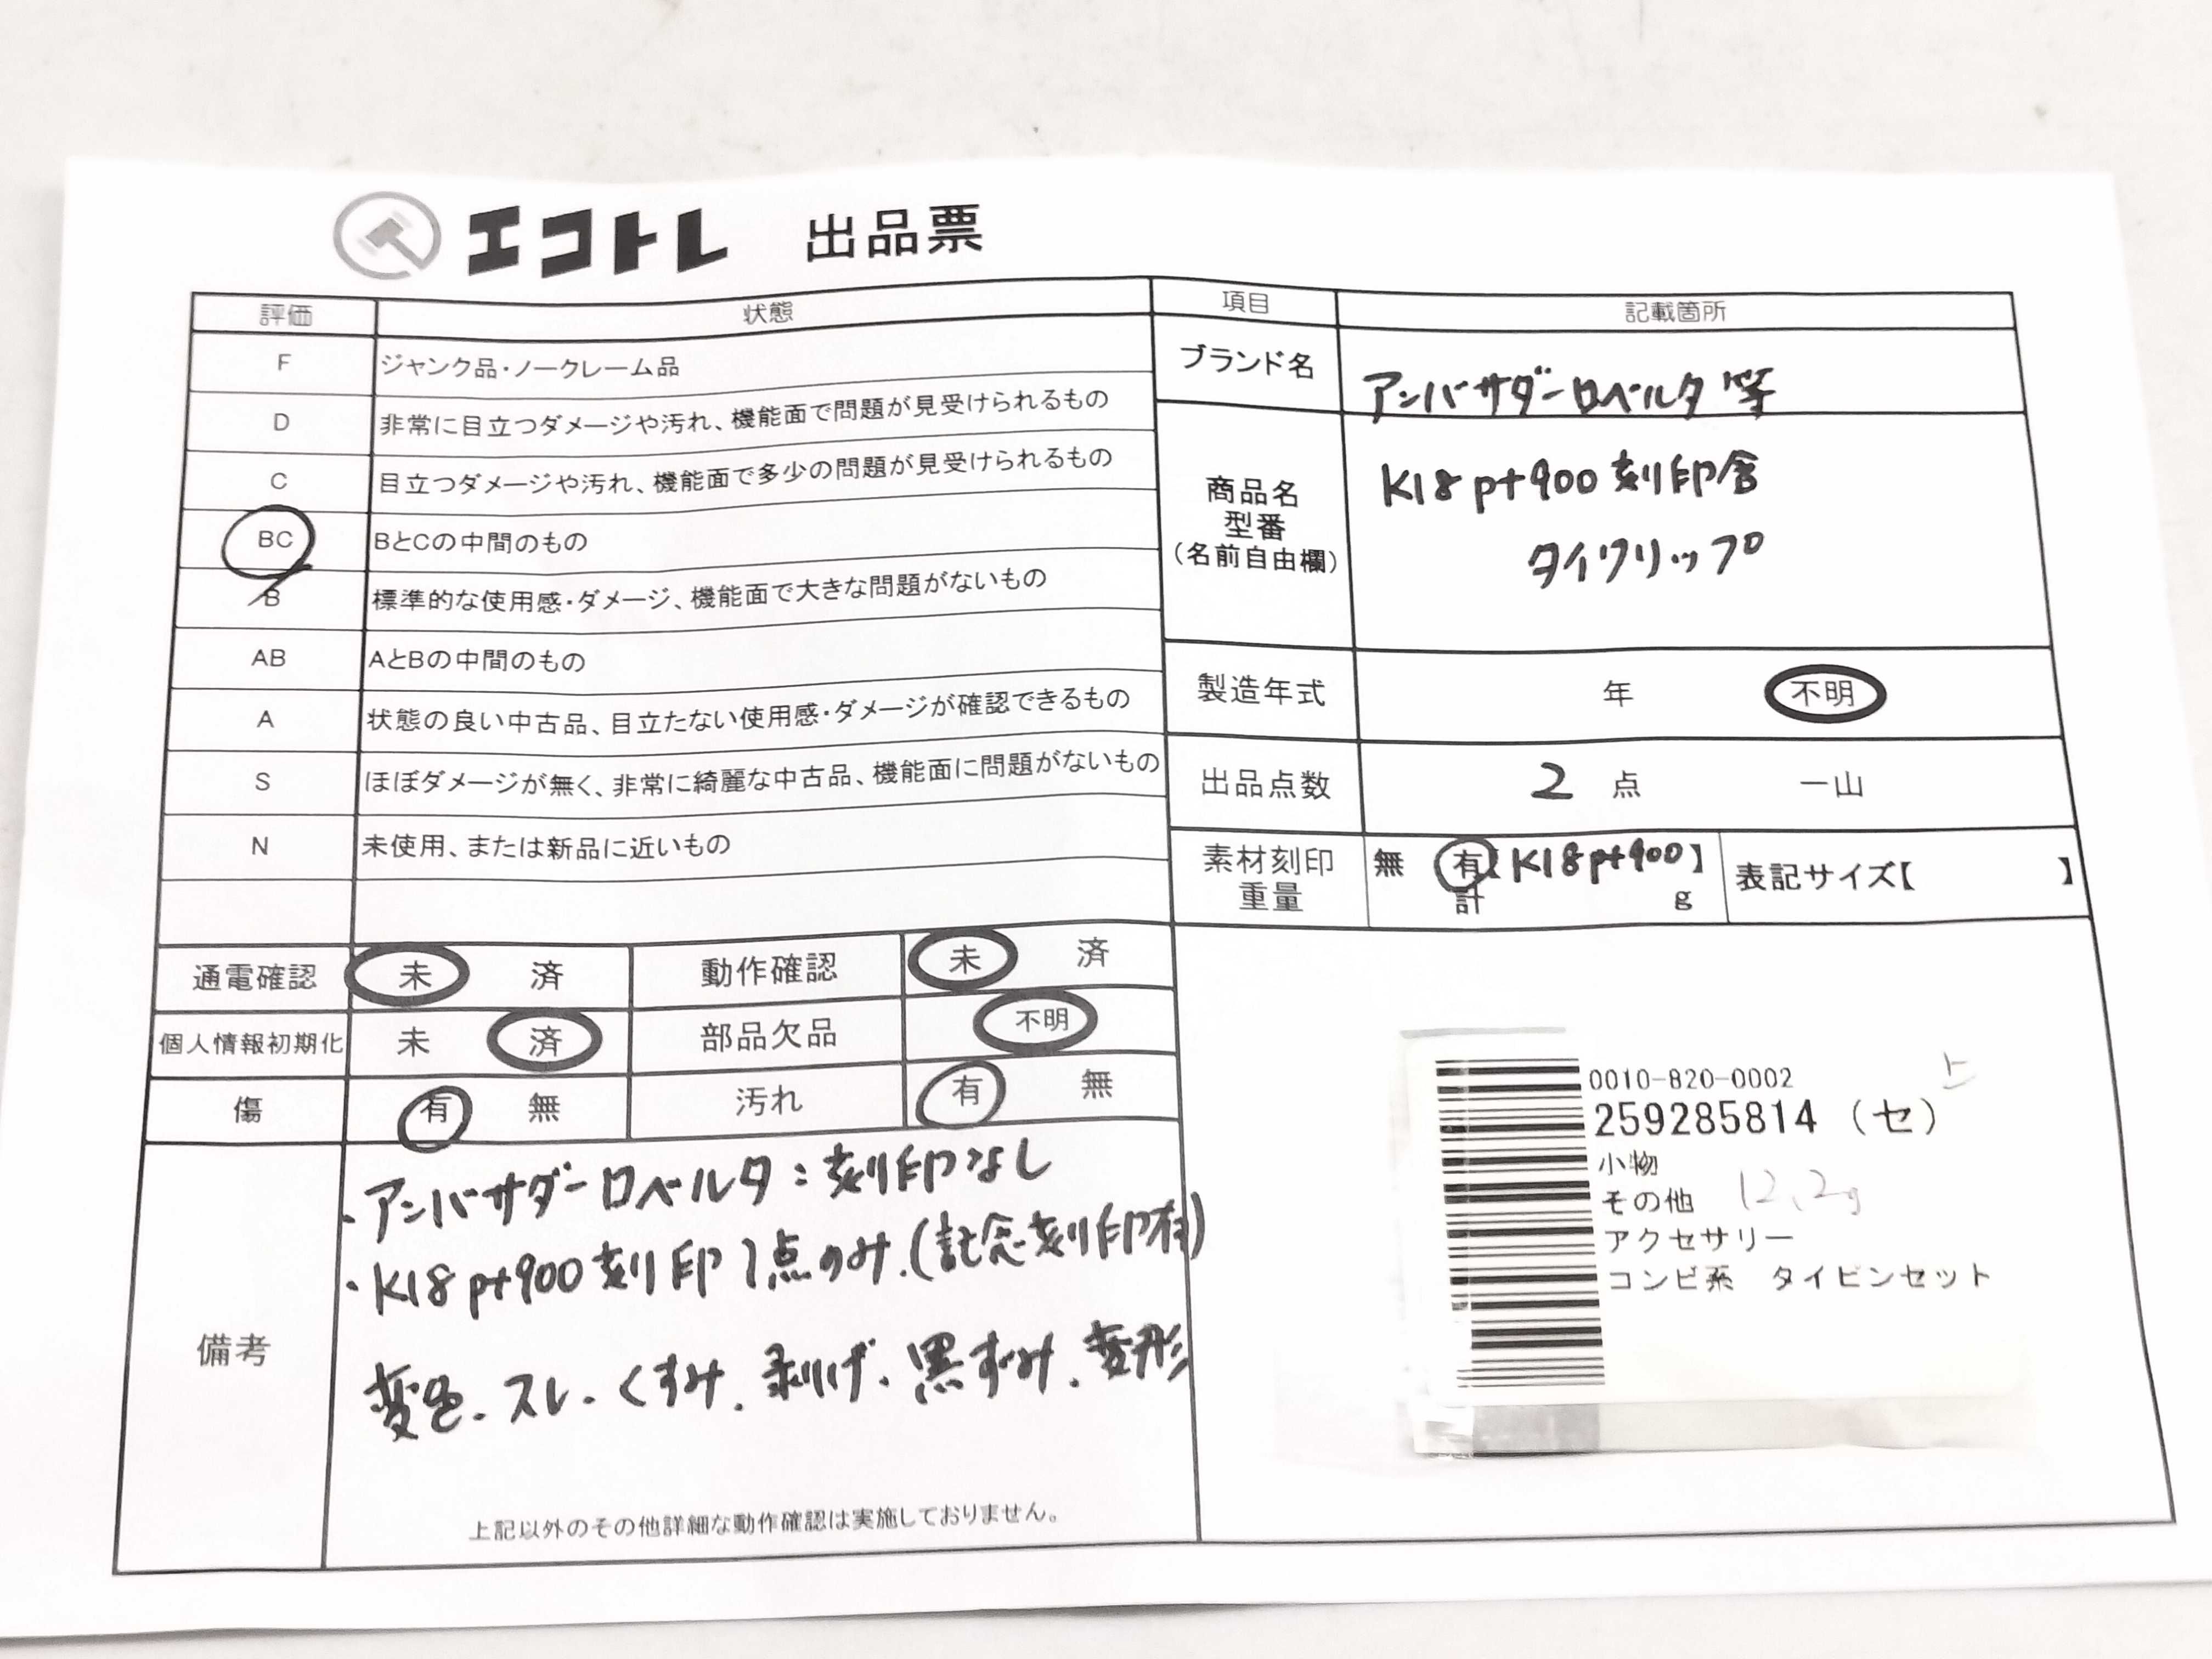 エコトレ 出品票
評価 状態
F ジャンク品・ノークレーム品
D 非常に目立つダメージや汚れ、機能面で問題が見受けられるもの
C 目立つダメージや汚れ、機能面で多少の問題が見受けられるもの
BC BとCの中間のもの
B 標準的な使用感・ダメージ、機能面で大きな問題がないもの
AB AとBの中間のもの
A 状態の良い中古品、目立たない使用感・ダメージが確認できるもの
S ほぼダメージが無く、非常に綺麗な中古品、機能面に問題がないもの
N 未使用、または新品に近いもの
通電確認 未 済 動作確認 未 済
個人情報初期化 未 済 部品欠品 不明
傷 有 無 汚れ 有 無
備考
・アンバサダーロベルタ:刻印なし
・K18 pt900 刻印 1点のみ.(記念刻印有)
変色.スレ.くすみ.剥げ.黒ずみ.変形
上記以外のその他詳細な動作確認は実施しておりません。
項目 記載箇所
ブランド名 アンバサダーロベルタ 等
商品名
型番
(名前自由欄)
K18 pt900 刻印含
タイクリップ
製造年式 年 不明
出品点数 2 点 一山
素材刻印 無 有【K18 pt900】
重量 計 g
表記サイズ【 】
0010-820-0002
259285814 (セ)
小物
その他 12.2g
アクセサリー
コンビ系 タイピンセット